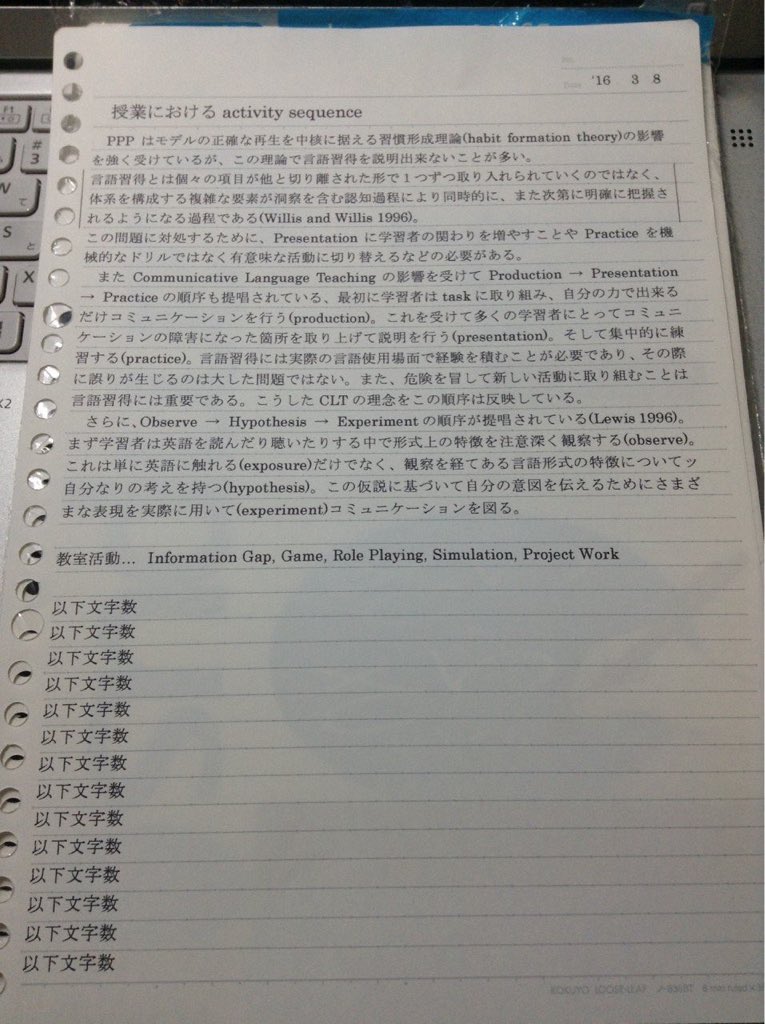 '16 3 8
授業における activity sequence
PPP はモデルの正確な再生を中核に据える習慣形成理論(habit formation theory)の影響
を強く受けているが、この理論で言語習得を説明出来ないことが多い。
言語習得とは個々の項目が他と切り離された形で1つずつ取り入れられていくのではなく、
体系を構成する複雑な要素が洞察を含む認知過程により同時的に、また次第に明確に把握さ
れるようになる過程である(Willis and Willis 1996)。
この問題に対処するために、Presentation に学習者の関わりを増やすことや Practice を機
械的なドリルではなく有意味な活動に切り替えるなどの必要がある。
また Communicative Language Teaching の影響を受けて Production → Presentation
→ Practice の順序も提唱されている、最初に学習者は task に取り組み、自分の力で出来る
だけコミュニケーションを行う(production)。これを受けて多くの学習者にとってコミュニ
ケーションの障害になった箇所を取り上げて説明を行う(presentation)。そして集中的に練
習する(practice)。言語習得には実際の言語使用場面で経験を積むことが必要であり、その際
に誤りが生じるのは大した問題ではない。また、危険を冒して新しい活動に取り組むことは
言語習得には重要である。こうした CLT の理念をこの順序は反映している。
さらに、Observe → Hypothesis → Experiment の順序が提唱されている(Lewis 1996)。
まず学習者は英語を読んだり聴いたりする中で形式上の特徴を注意深く観察する(observe)。
これは単に英語に触れる(exposure)だけでなく、観察を経てある言語形式の特徴についてッ
自分なりの考えを持つ(hypothesis)。この仮説に基づいて自分の意図を伝えるためにさまざ
まな表現を実際に用いて(experiment)コミュニケーションを図る。
教室活動… Information Gap, Game, Role Playing, Simulation, Project Work
以下文字数
以下文字数
以下文字数
以下文字数
以下文字数
以下文字数
以下文字数
以下文字数
以下文字数
以下文字数
以下文字数
以下文字数
以下文字数
以下文字数
KOKUYO LOOSE-LEAF
F1
#
3
W
て
S
と
X